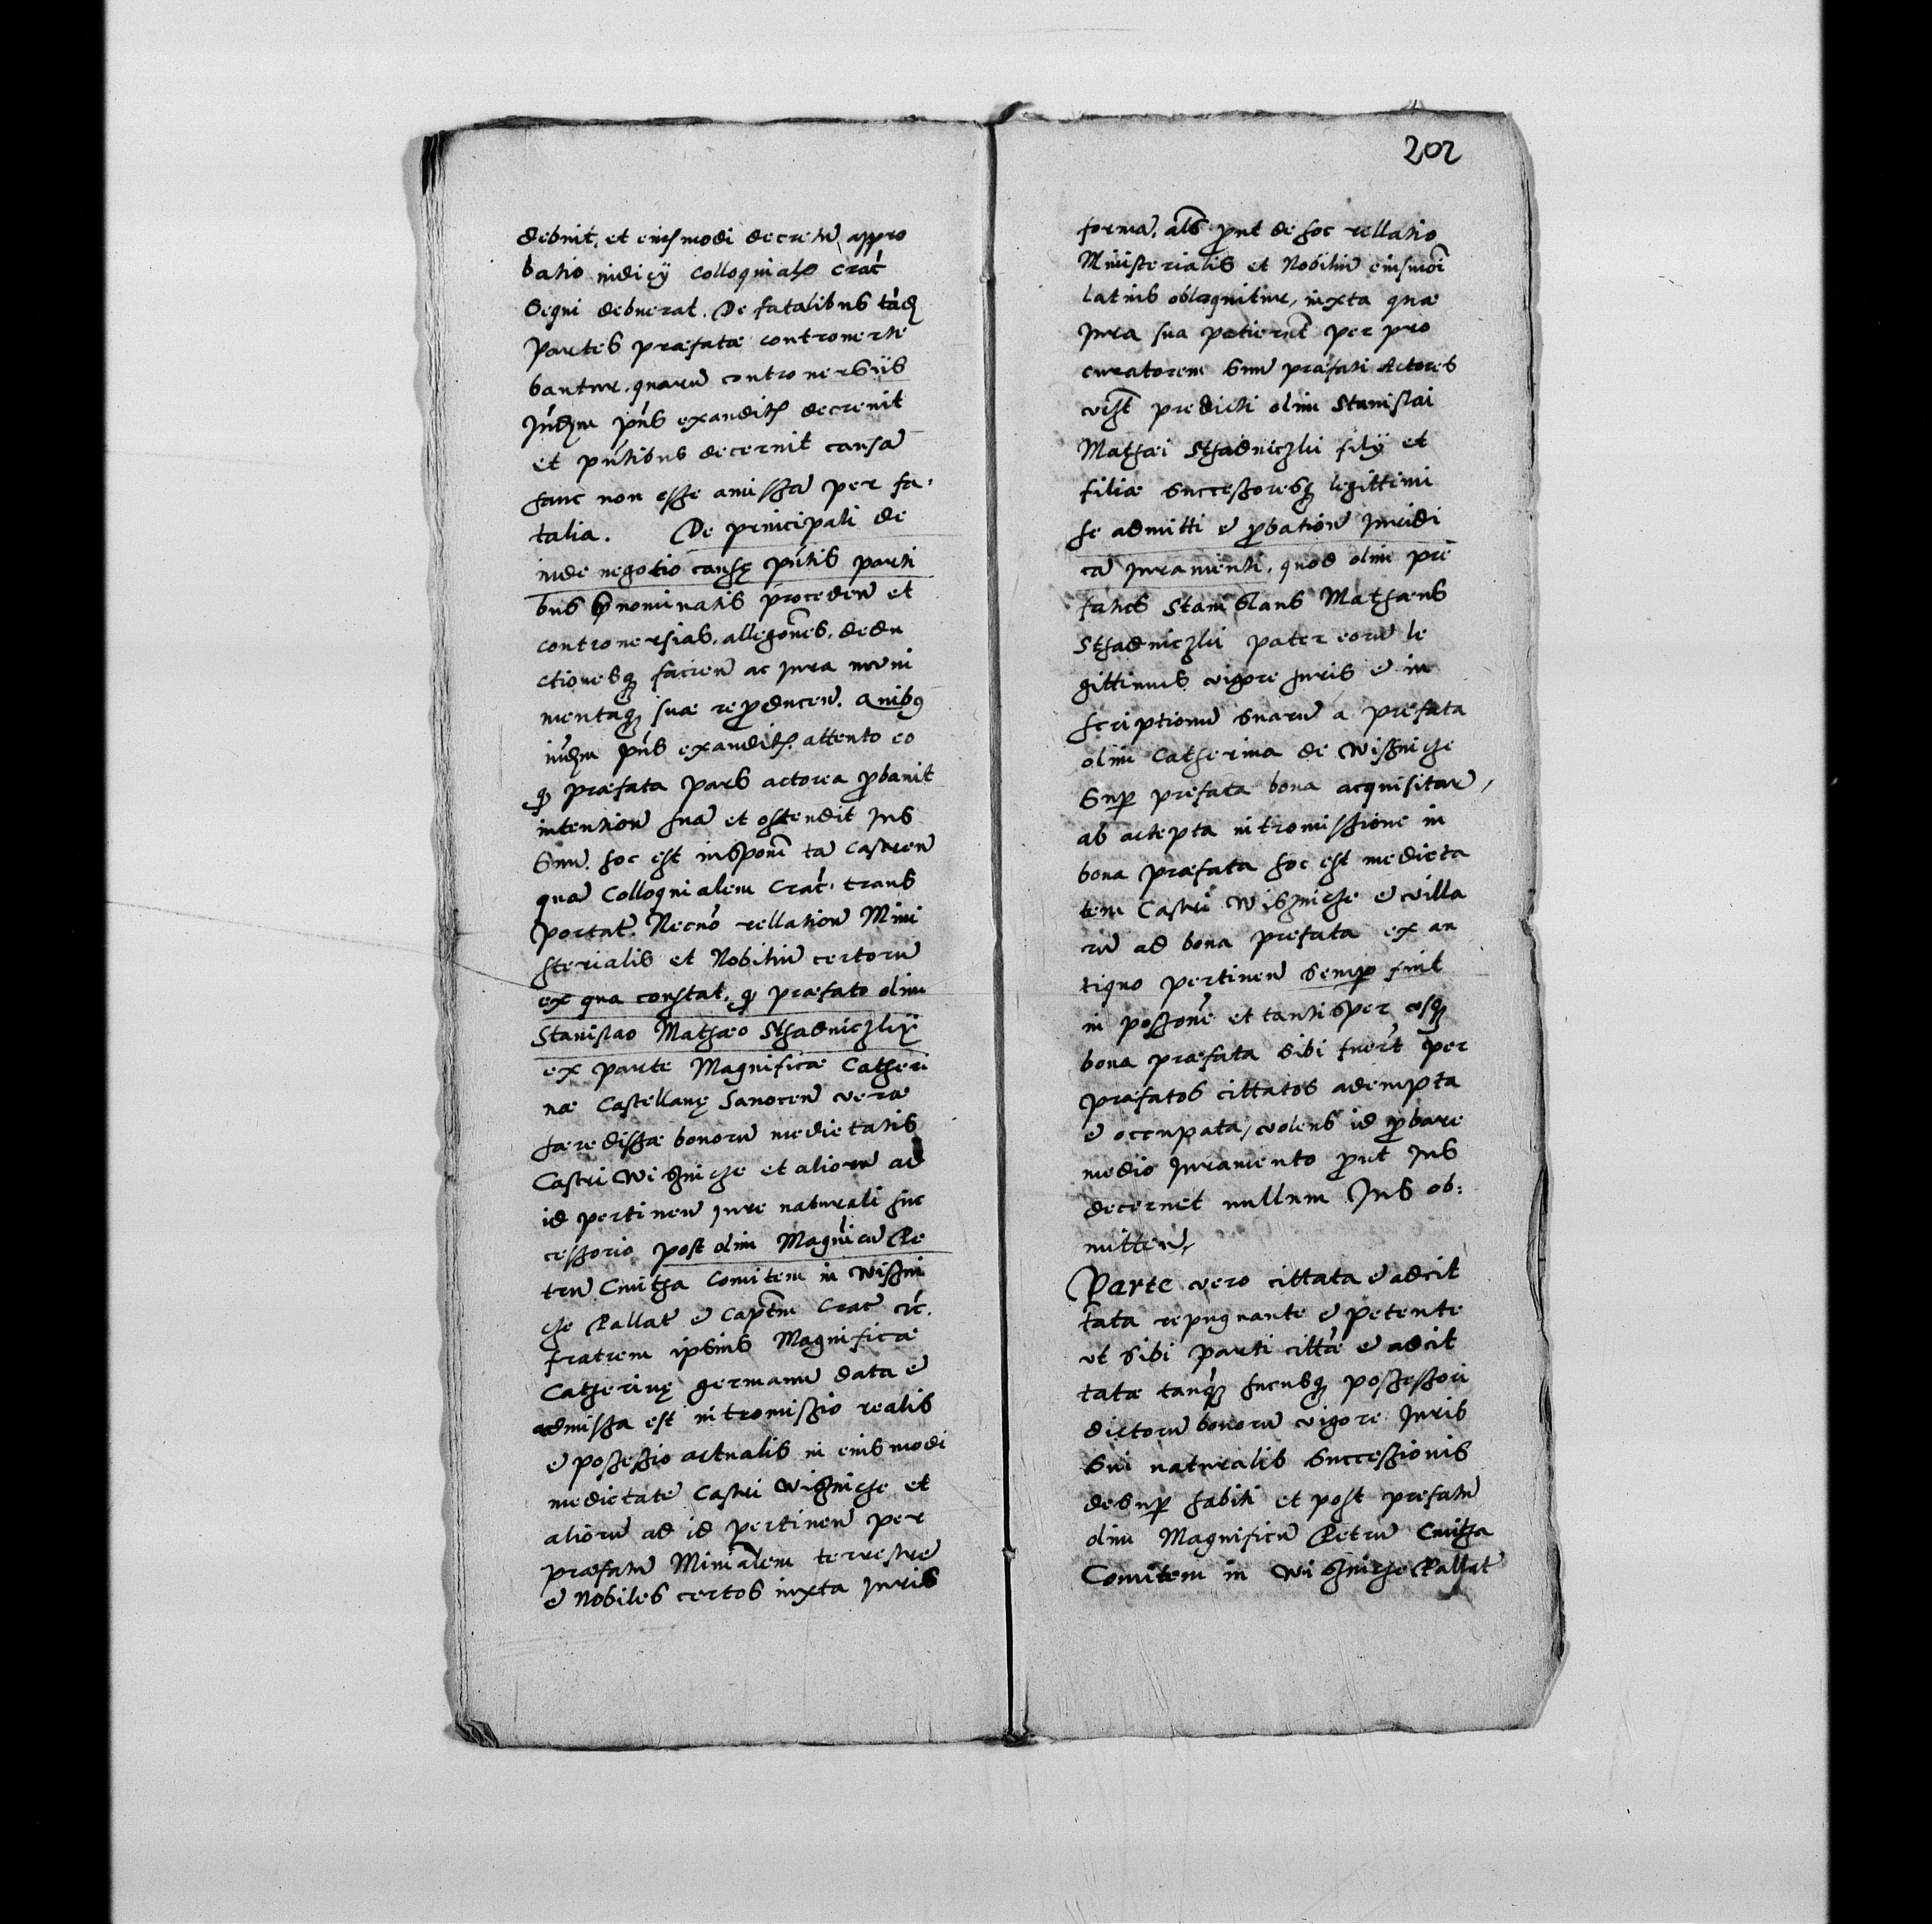 debuit, et eiusmodi decretu͂ appro
batio iudicÿ colloquial͂ Crac͂
Sequi debuerat. De fatalibus tand͂
Partes praefatae controuerte
bantur. quaru͂ controuersiis
Jud͂m pn͂s exaudit͂ decreuit
et pn͂tibus decernit causa͂
hanc non esse amissa͂ per fa,
talia. De principali de
inde negotio causę pn͂tis parti
bus p͂nominatis proceden͂ et
controuersias, allegon͂es, dedu
ctionesq͂ facien͂ ac Jura muni
mentaq͂ sua rep͂ducen͂. Quibꝰ
iud͂m pn͂s exaudit͂. attento eo
q͂ praefata pars actorea p͂bauit
intention͂ sua͂ et ostendit Jus
Suu͂. hoc est inspon͂e ta͂ Castren͂
qua͂ Colloquialem Crac͂. trans
portat͂. Necno͂ rellation͂ Mini
sterialis et Nobiliu͂ certoru͂
ex qua constat, q͂ praefato olim
Stanislao Mathaeo Sthadniczkÿ
ex parte Magnificae Catheri
nae Castellanę Sanocen͂ verae
haeredissae bonoru͂ medietatis
Castri Wisznicze et alioru͂ ad
id pertinen͂ Jure naturali suc
cessorio post olim Magn͂icu͂ Pe
tru͂ Cmitha Comitem in Wiszni
cze Pallat͂ et Capt͂m Crac͂ etc͂.
fratrem ipsius Magnificae
Catherinę germanu͂ data et
admissa est intromissio realis
et possessio actualis in eiusmodi
medietate͂ Castri Wisznicze et
alioru͂ ad id pertinen͂ per
praefatu͂ Minial͂em terrestre͂
et Nobiles certos iuxta Juris
202
forma͂. als͂ p͂ut de hoc rellatio
Ministerialis et Nobiliu͂ eiusmo͂i
latius obloquitur, iuxta quae
Jura sua petieru͂t per pro
curatorem suu͂ praefati Actores
vid͂t predicti olim Stanislai
Mathaei Sthadniczki filÿ et
filiae successoresq͂ legittimi
se admitti et p͂bation͂ Juridi
ca͂ Juramenti, quod olim pre
fatus Stanislaus Mathaeus
Sthadniczki pater eoru͂ le
gittimus vigore Juris et in
scriptionu͂ suaru͂ a prefata
olim Catherina de Wisznicze
Sup͂ prefata bona acquisitar͂,
ab accepta intromissione in
bona praefata hoc est medieta
tem Castri Wisznicze et villa
ru͂ ad bona prefata ex an
tiquo pertinen͂ semp͂ fuit
in posson͂e et tantisper eosq͂
bona praefata sibi fuer͂t per
praefatos cittatos adempta
et occupata, volens id p͂bare
medio Juramento p͂ut Jus
decernet nullum Jus ob:
mitten͂,
Parte vero cittata et adcit
tata repugnante et petente
ut sibi parti citta͂e et adcit
tatae tanq͂ hucusq͂ possessori
dictoru͂ bonoru͂ vigore Juris
Sui naturalis Successionis
desup͂ habiti et post prefatu͂
olim Magnificu͂ Petru͂ Cmitha
Comitem in Wisznicze Pallat͂